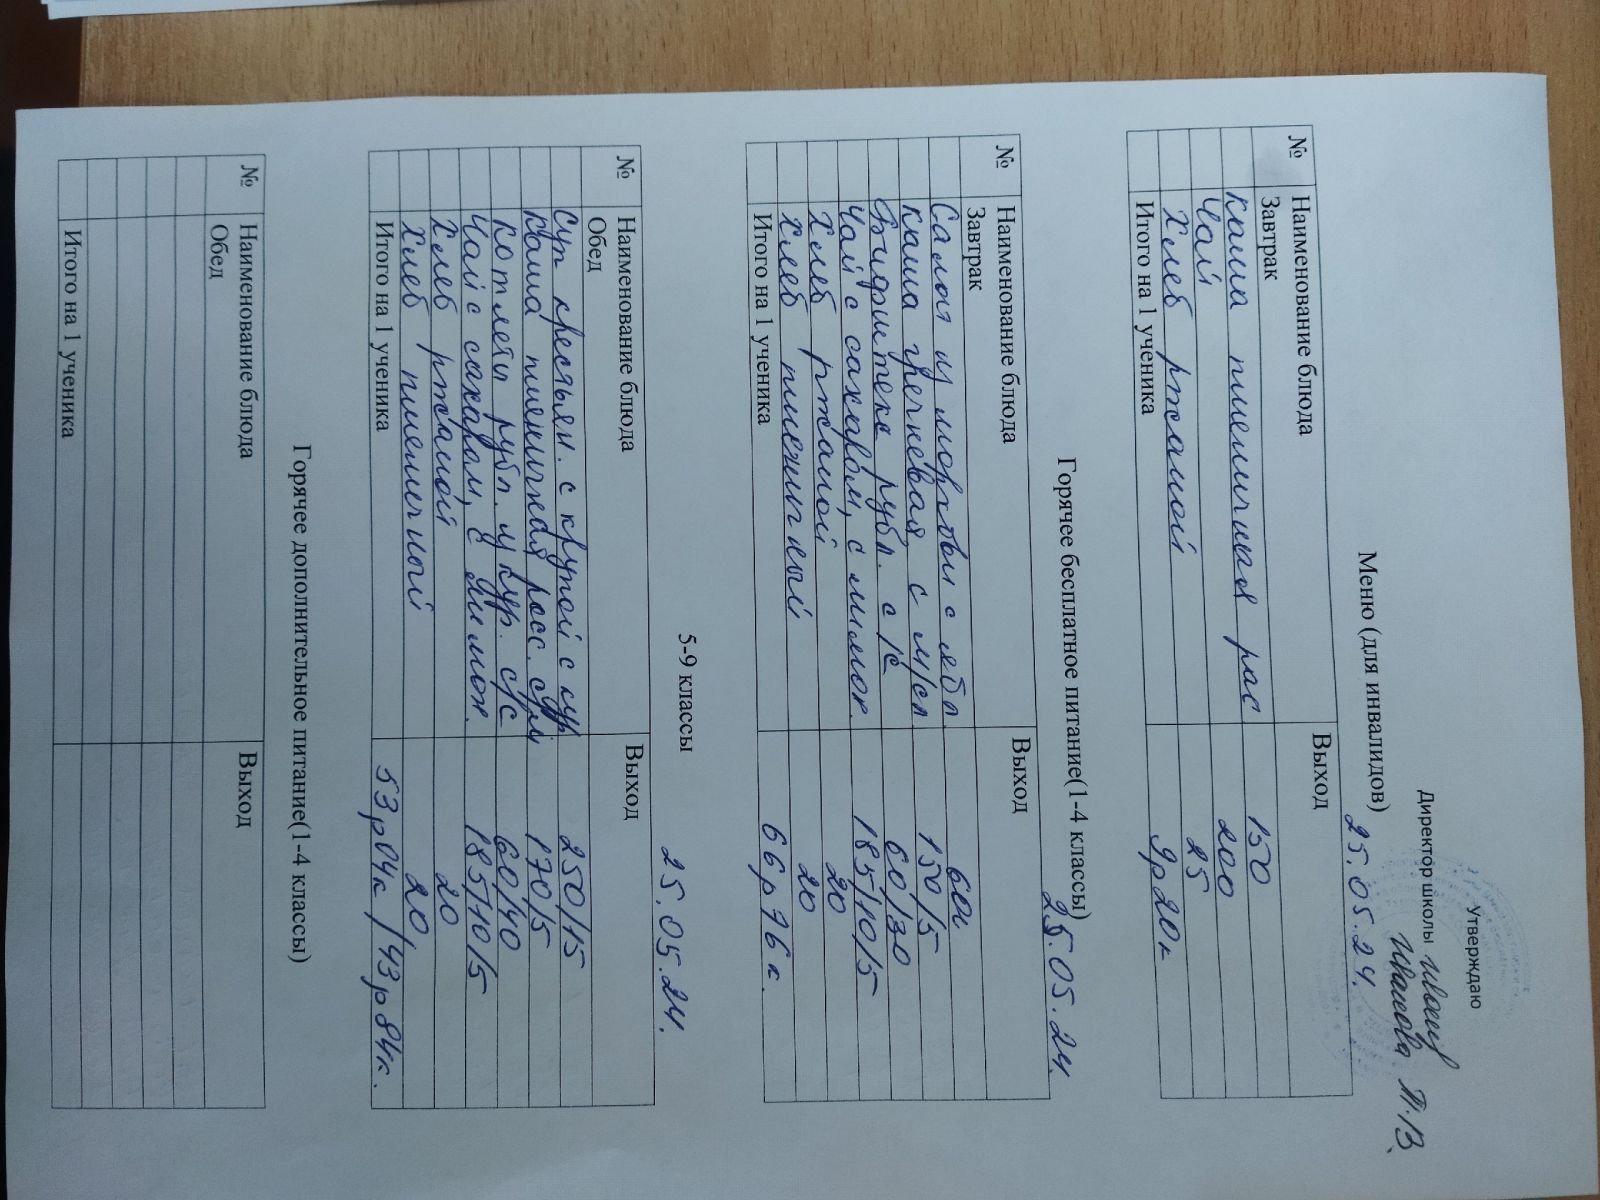 Утверждаю
Директор школы
Иванова П.В.
Меню (для инвалидов)
25.05.24.
№ Наименование блюда Выход
Завтрак
каша пшеничная рас 150
Чай 200
Хлеб ржаной 25
Итого на 1 ученика 9р20к
Горячее бесплатное питание(1-4 классы)
25.05.24.
№ Наименование блюда Выход
Завтрак
Салат из моркови с ябл 60
каша гречневая с м/сл 150/5
Бифштекс рубл. с 60/30
Чай с сахаром, с лимон. 185/10/5
Хлеб ржаной 20
Хлеб пшеничный 20
Итого на 1 ученика 66р76к.
5-9 классы
25.05.24.
№ Наименование блюда Выход
Обед
Суп крестьян. с крупой с кур 250/15
каша пшеничная расс. с/м 170/5
котлеты рубл. из кур. с/с 60/40
Чай с сахаром, с лимон. 185/10/5
Хлеб ржаной 20
Хлеб пшеничный 20
Итого на 1 ученика 53р04к/43р84к.
Горячее дополнительное питание(1-4 классы)
№ Наименование блюда Выход
Обед
Итого на 1 ученика